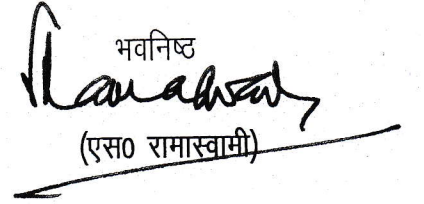 भवनिष्ठ
(एस0 रामास्वामी)